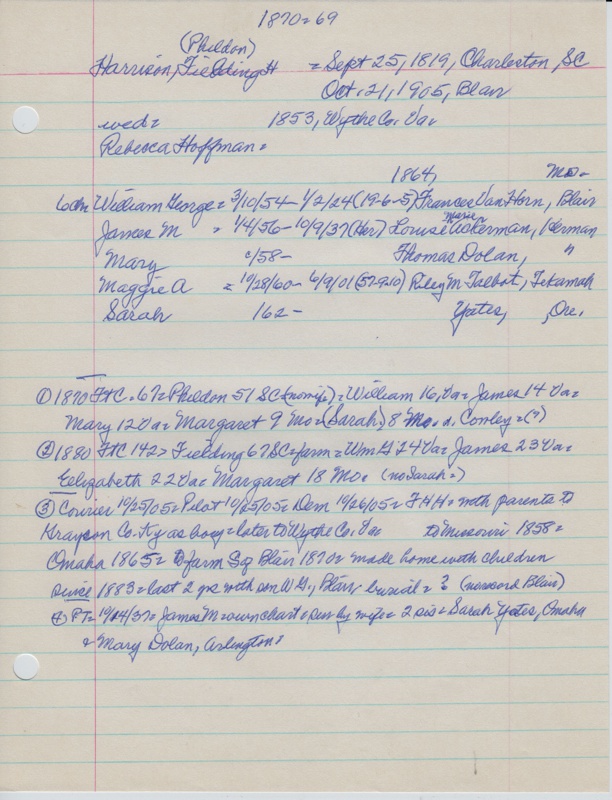 1870=69
(Phildon)
Harrison, Fielding H = Sept 25, 1819, Charleston, SC
Oct. 21, 1905, Blair
wed= 1853, Wythe Co. Va.
Rebecca Hoffman=
1864, Mo-
6ch William George = 3/10/54 - 1/2/24 (19-6-5) Frances Van Horn, Blair
James M = 1/4/56 - 10/9/37 (Her) Louise Marie Ackerman, Herman
Mary c/58 - Thomas Dolan, "
Maggie A = 10/28/60 - 6/9/01 (57-9-10) Riley M Talbot, Tekamah
Sarah 162 - Yates, Ore.
① 1870 FtC. 67= Phildon 51 SC (no wife) = William 16, Va= James 14 Va=
Mary 12 Va= Margaret 9 Mo= (Sarah) 8 Mo. n. Conley = (?)
② 1880 FtC 142> Fielding 67 SC= farm= Wm G 24 Va= James 23 Va=
Elizabeth 22 Va= Margaret 18 Mo= (no Sarah=)
③ Courier 10/25/05= Pilot 10/25/05= Dem 10/26/05= FHH= with parents to
Grayson Co. Ky as boy= later to Wythe Co. Va to Missouri 1858=
Omaha 1865= to farm Blair 1870= made home with children
since 1883= last 2 yrs with son W G., Blair, burial= ? (no record Blair)
④ PT= 10/14/37= James M= own chart= sur by wife= 2 sis= Sarah Yates, Omaha
& Mary Dolan, Arlington=